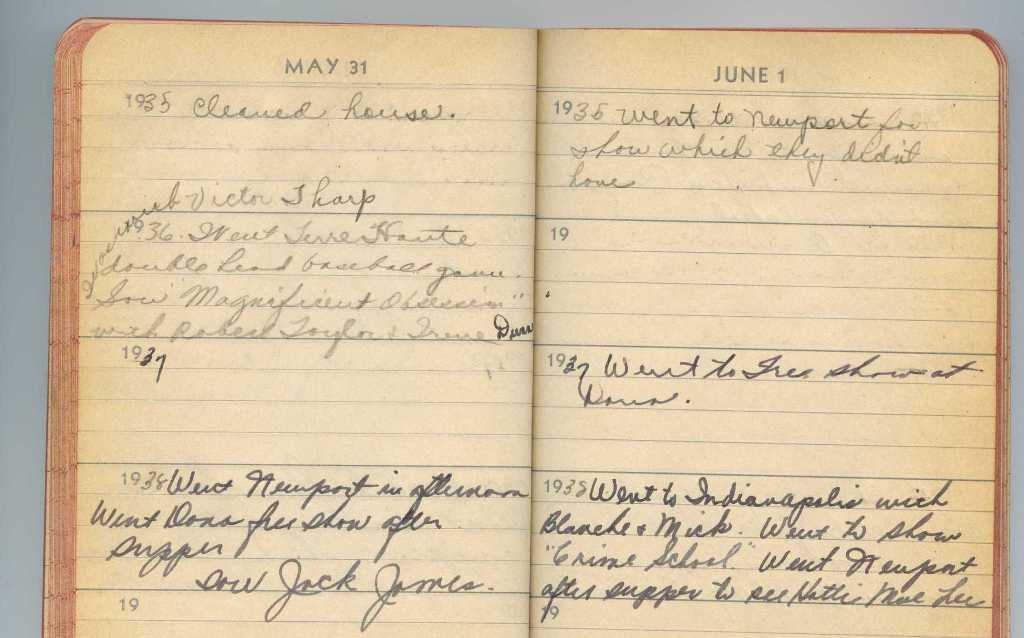 MAY 31
1935 Cleaned house.
with Victor Tharp
1936. Went Terre Haute
double head baseball game.
Saw "Magnificent Obsession"
with Robert Taylor & Irene Dunn
1937
1938 Went Newport in afternoon
Went Dana free show after
supper
saw Jack James.
19
JUNE 1
1935 went to Newport for
show which they didn't
have
19
1937 Went to Free show at
Dana.
1938 Went to Indianapolis with
Blanche & Mick. Went to show
"Crime School" Went Newport
after supper to see Hattie Mae Lee
19